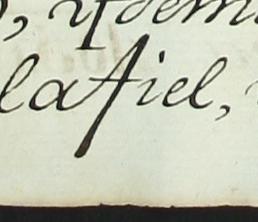 , y dema
la fiel,